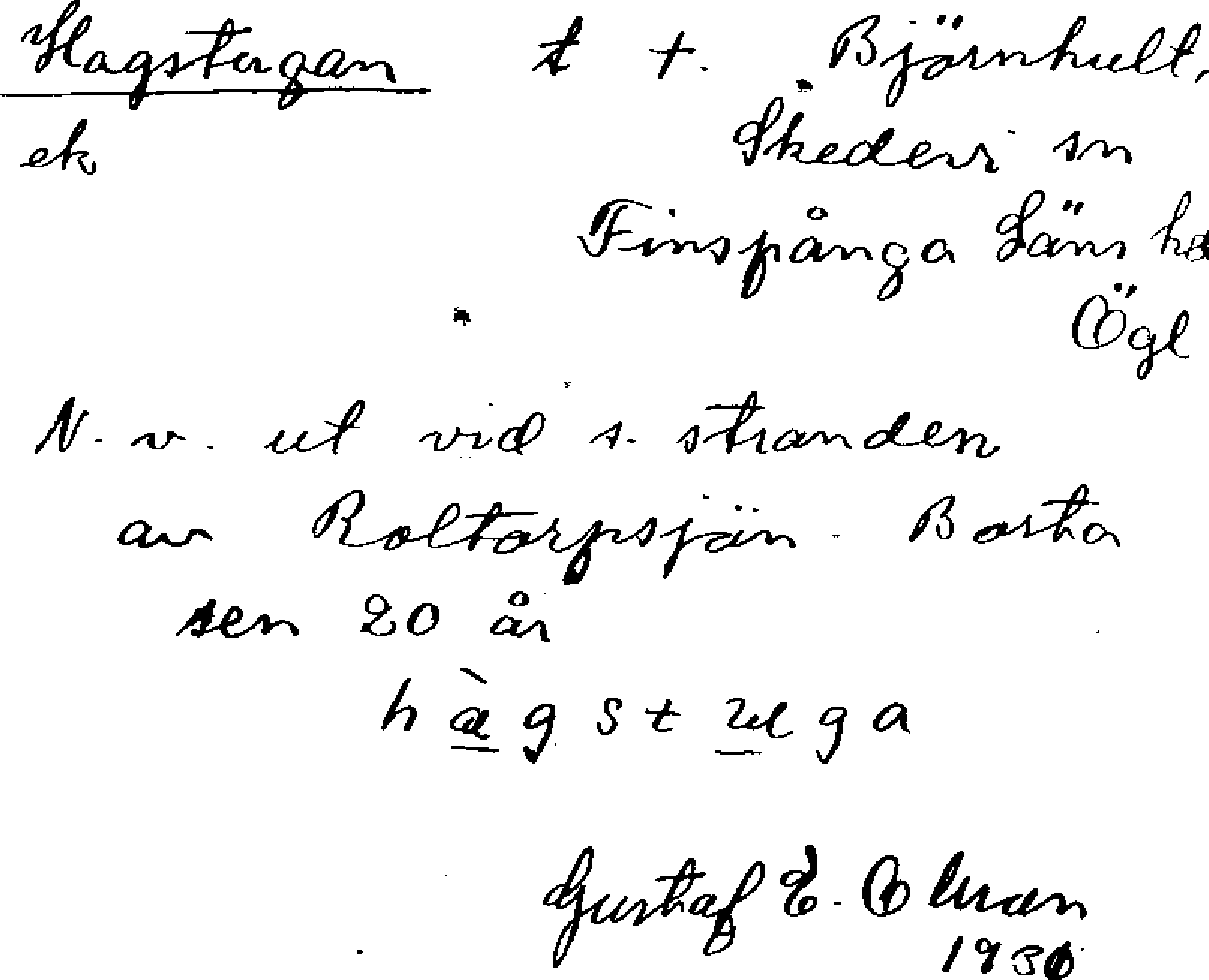 Hagstugan t t. Björnhult,
ek Skedevi sn
Finspånga Läns hd
Ögl
N. v. ut vid s. stranden
av Roltorpsjön. Borta
sen 20 år
h à g s t u g a
Gustaf E.